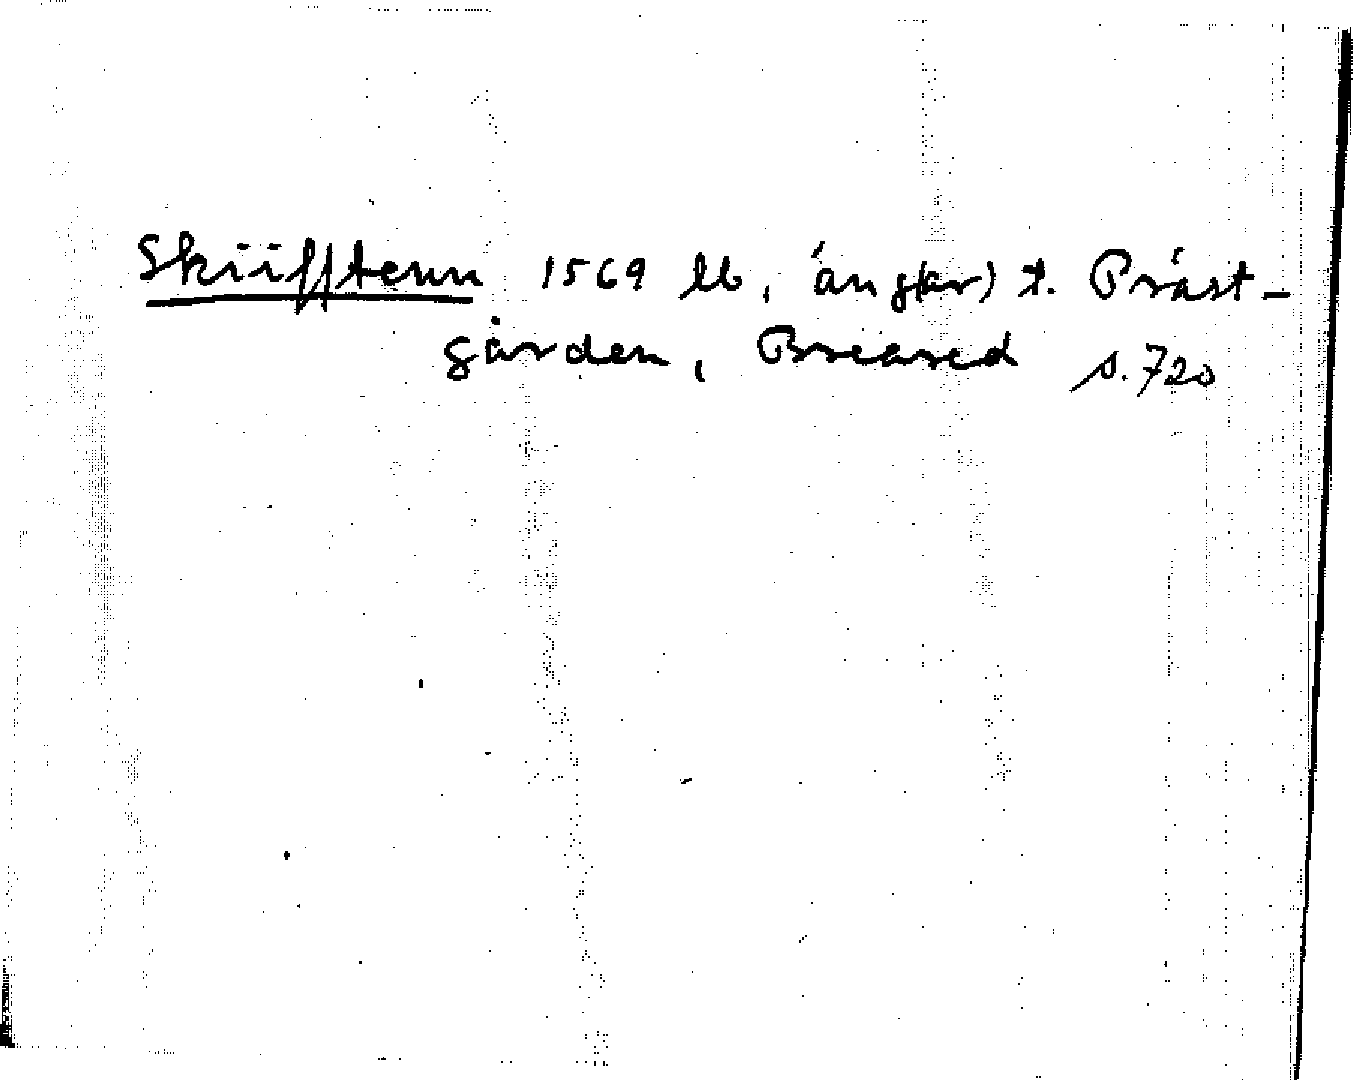 Skiifftenn 1569 lb, äng(ar) t. Präst-
gården, Breared s.720